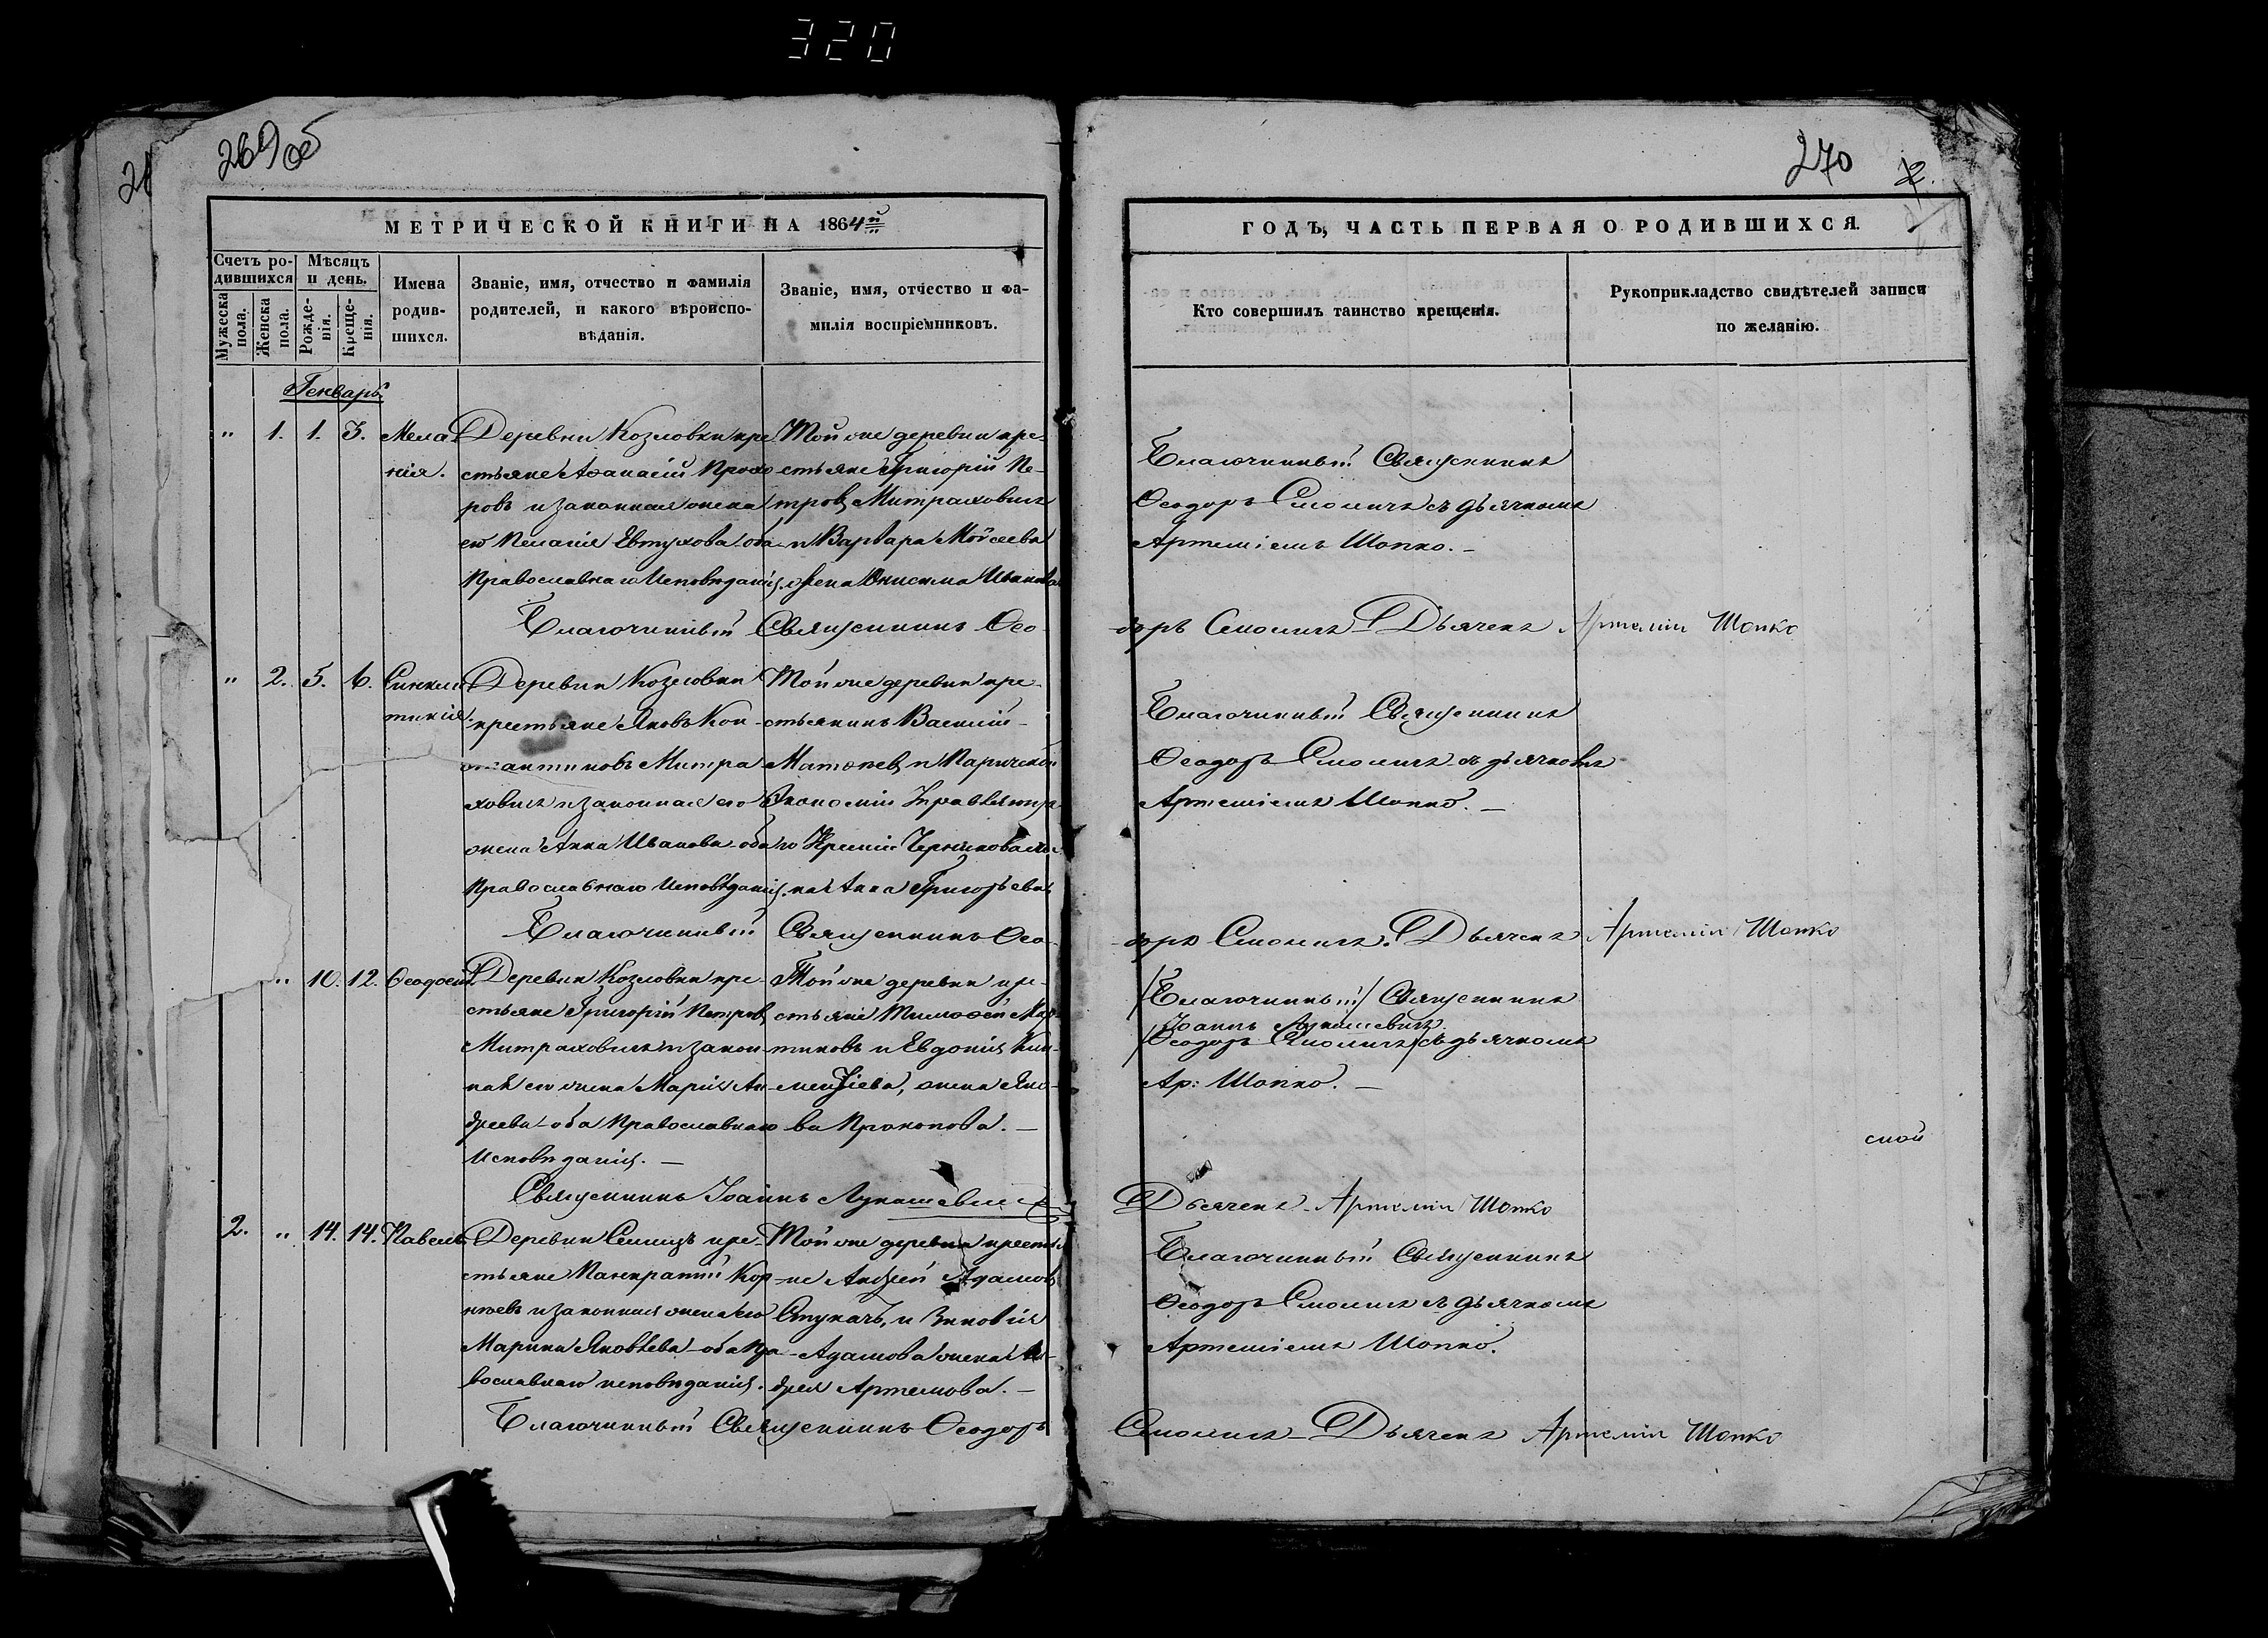 320
269 об
270
МЕТРИЧЕСКОЙ КНИГИ НА 1864й
ГОДЪ, ЧАСТЬ ПЕРВАЯ О РОДИВШИХСЯ.
Счетъ ро-
дившихся
Мѣсяцъ
и день.
Мужеска
пола.
Женска
пола.
Рожде-
нія.
Креще-
нія.
Имена
родив-
шихся.
Званіе, имя, отчество и фамилія
родителей, и какого вѣроиспо-
вѣданія.
Званіе, имя, отчество и фа-
милія воспріемниковъ.
Кто совершилъ таинство крещенія.
Рукоприкладство свидѣтелей записи
по желанію.
Генварь
" 1. 1. 3.
Мела
нія.
Деревни Козловки кре
стьяне Аѳанасій Прохо
ровъ и законная жена
его Пелагія Евтухова оба
Православнаго Исповѣданія.
Той же деревни кре-
стьяне Григорій Пе-
тровъ Митраховичъ
и Варвара Мойсеева
жена Онисима Иванова
Благочинный Священникъ
Ѳеодоръ Смоличъ съ дьячкомъ
Артеміемъ Шопко.-
Благочинный Священникъ Ѳео
доръ Смоличъ Дьячекъ Артемій Шопко
" 2. 5. 6.
Синкли
тикія.
Деревни Козловки
крестьяне Яковъ Кон-
стантиновъ Митра
ховичъ и законная его
жена Анна Иванова оба
Православнаго Исповѣданія.
Той же деревни кре-
стьянинъ Василій
Матѳеевъ и Паричской
Экономіи Управляюща
го
Анна Григорьева
Благочинный Священникъ
Ѳеодоръ Смоличъ съ дьячкомъ
Артеміемъ Шопко.-
Благочинный Священникъ Ѳео-
доръ Смоличъ. Дьячекъ Артемій Шопко
" 10. 12.
Ѳеодосій.
Деревни Козловки кре-
стьяне Григорій Петровъ
Митраховичъ и закон-
ная его жена Марія Ан-
дреева оба Православнаго
Исповѣданія.-
Той же деревни кре-
стьяне Тимоѳей Мар
тиновъ и Евдокія Кли-
ментіева, жена Яко-
ва Прокопова.-
/Благочинный/ Священникъ
Іоаннъ Лукашевичъ
/Ѳеодоръ Смоличъ/ съ дьячкомъ
Ар: Шопко.-
Священникъ Іоаннъ Лукашевичъ
Дьячекъ Артемій Шопко
2. " 14. 14.
Павелъ
Деревни Селищъ кре-
стьяне Панкратій Кор
нѣевъ и законная жена его
Марина Яковлева оба Пра
вославнаго исповѣданія.
Той же деревни крестья
не Андрей Адамовъ
Стукачъ, и Зиновія
Адамова жена Ан-
дрея Артемова.-
Благочинный Священникъ
Ѳеодоръ Смоличъ съ дьячкомъ
Артеміемъ Шопко.
Благочинный Священникъ Ѳеодоръ
Смоличъ Дьячекъ Артемій Шопко